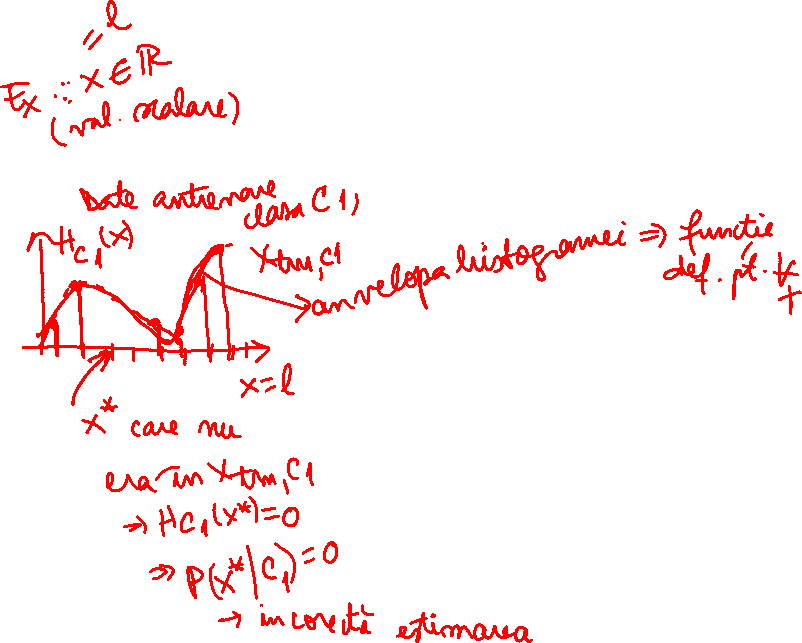 = l
Ex.: x ∈ ℝ
(val. scalare)
Date antrenare
clasa C1,
H_{C1}(x)
X_{trn,C1}
anvelopa histogramei ⇒ functie
def. pt. ∀
x = l
x* care nu
era in X_{trn,C1}
→ H_{C1}(x*) = 0
⇒ P(x*|C1) = 0
→ incorectă estimarea